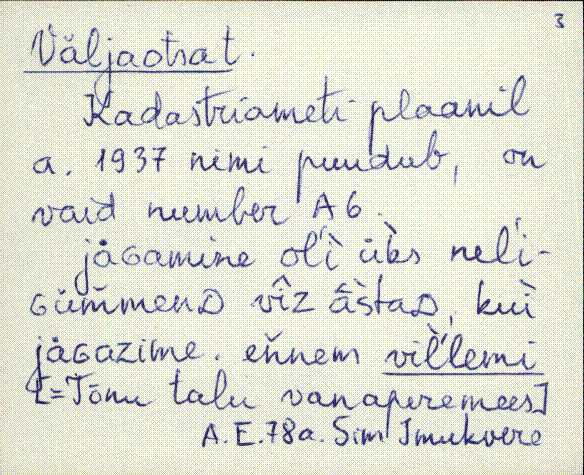 3
Väljaotsa t.
Kadastriameti plaanil
a. 1937 nimi puudub, on
vaid number A6.
jåɢamine oĺì ùks neĺi-
ɢüm̆menᴅ vîz âstaᴅ, kuì
jåɢazime. en̆nem vil̆lemi
[=Tõnu talu vanaperemees]
A.E.78a. Sim Imukvere